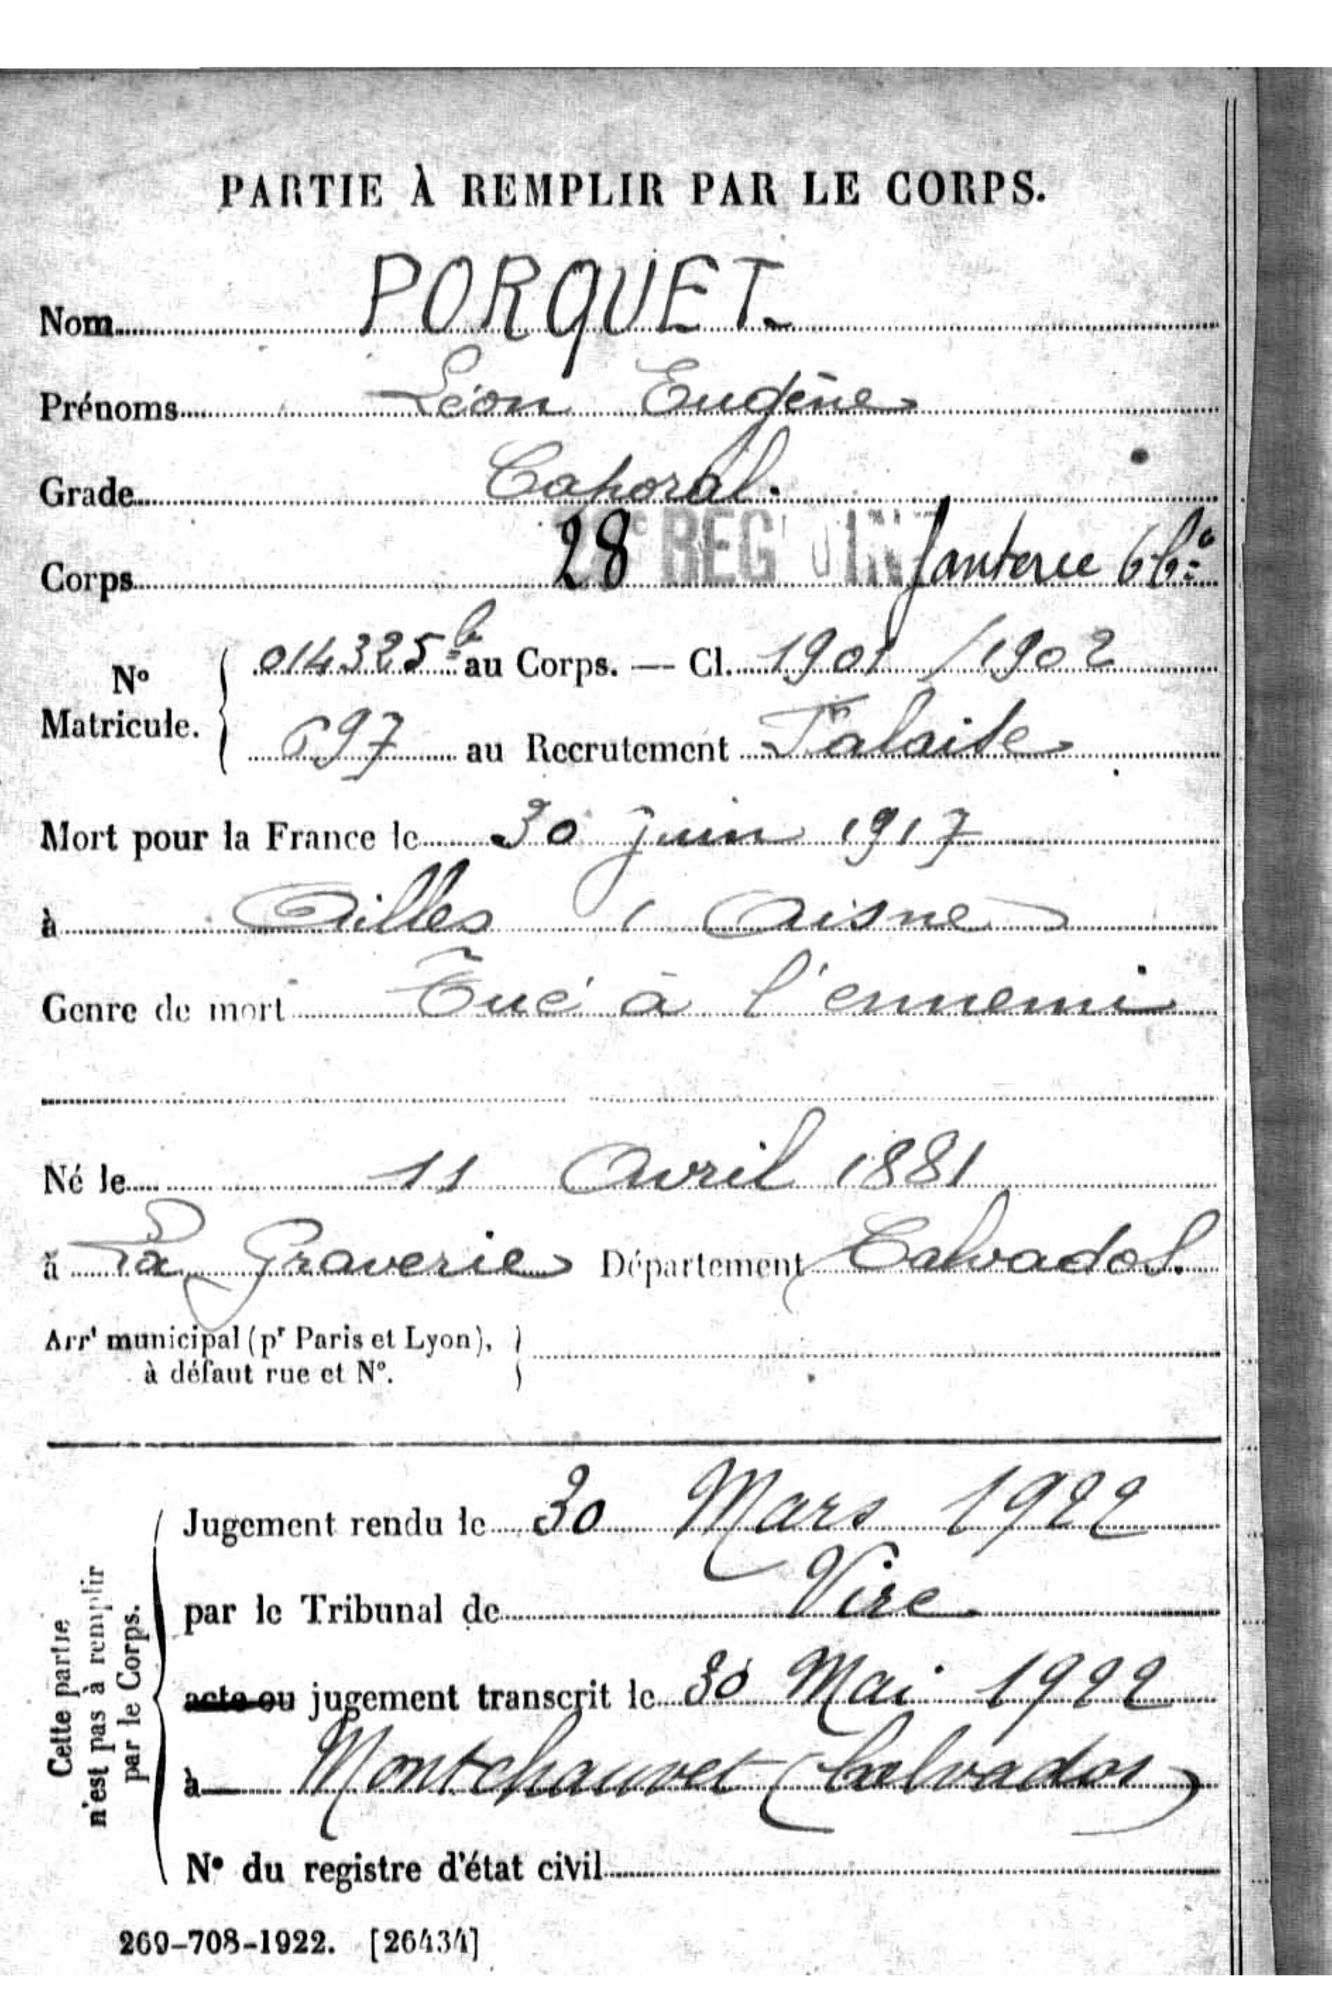 PARTIE À REMPLIR PAR LE CORPS.
Nom PORQUET
Prénoms Léon Eugène
Grade Caporal.
Corps 28 e REG D'IN fanterie 6 Cie
No Matricule. 014325b au Corps. — Cl. 1901 / 1902
697 au Recrutement Falaise
Mort pour la France le 30 Juin 1917
à Ailles (Aisne)
Genre de mort Tué à l'ennemi
Né le 11 Avril 1881
à La Graverie Département Calvados.
Arrt municipal (pr Paris et Lyon),
à défaut rue et No.
Cette partie n'est pas à remplir par le Corps.
Jugement rendu le 30 Mars 1922
par le Tribunal de Vire
acte ou jugement transcrit le 30 Mai 1922
à Montchauvet (Calvados)
No du registre d'état civil
269-708-1922. [26434]